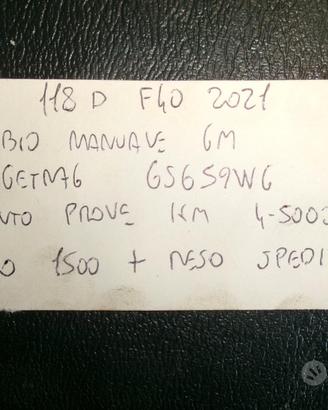 118 D F40 2021
BIO MANUALE 6M
GETRAG GS6S9WG
NTO PROVE KM 4-5000
O 1500 + RESO SPEDI